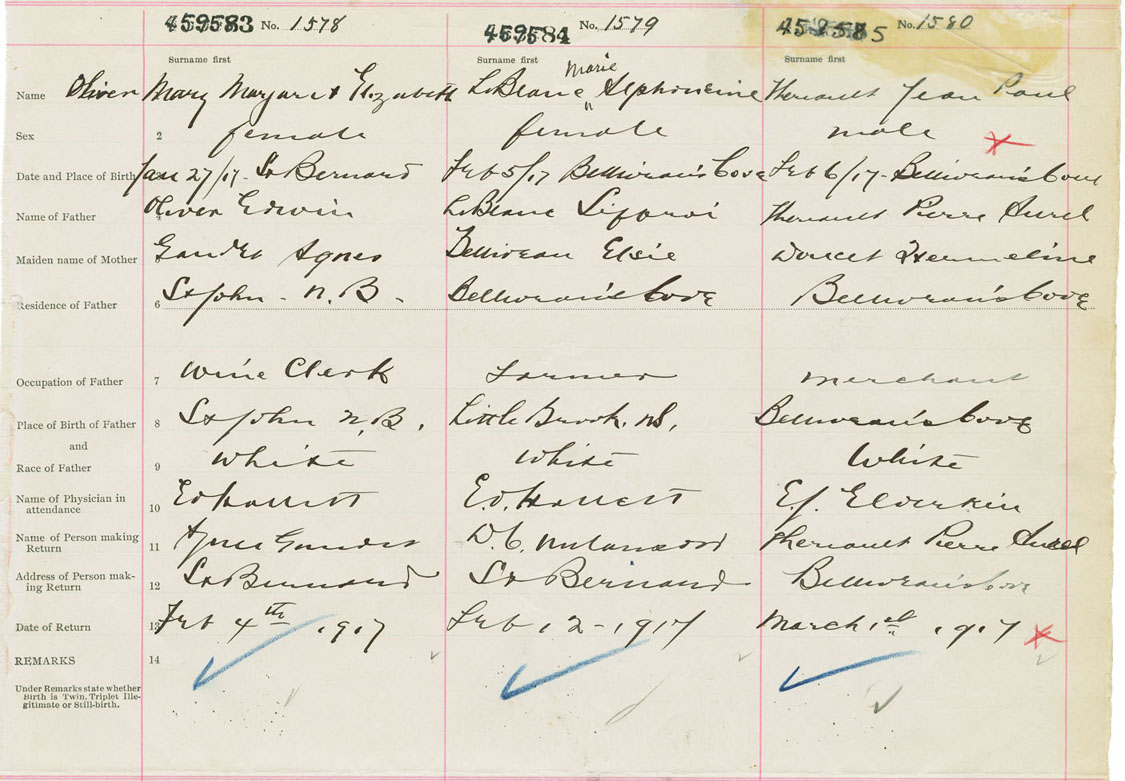 459583 No. 1578 459584 No. 1579 No. 1580
Surname first Surname first Surname first
Marie
Name Oliver Mary Margaret Elizabeth LeBlanc " Alphonsine Theriault Jean Paul
Sex 2 female female male
Date and Place of Birth Jan 27/17 - St Bernard Feb 5/17 Belliveau's Cove Feb 6/17 - Belliveau's Cove
Name of Father Oliver Edwin LeBlanc Theriault Pierre Aurel
Maiden name of Mother Agnes Belliveau Elsie Doucet
Residence of Father 6 St John - N. B. Belliveau's Cove Belliveau's Cove
Occupation of Father 7 Wine Clerk Farmer Merchant
Place of Birth of Father 8 St John N, B, Little Brook, NS, Belliveau's Cove
and
Race of Father 9 White White White
Name of Physician in
attendance 10 E.J. Elderkin
Name of Person making
Return 11 Agnes Theriault Pierre Aurel
Address of Person mak-
ing Return 12 St Bernard St Bernard Belliveau's Cove
Date of Return 13 Feb 4th 1917 Feb 12 - 1917 March 1st 1917
REMARKS 14
Under Remarks state whether
Birth is Twin. Triplet Ille-
gitimate or Still-birth.